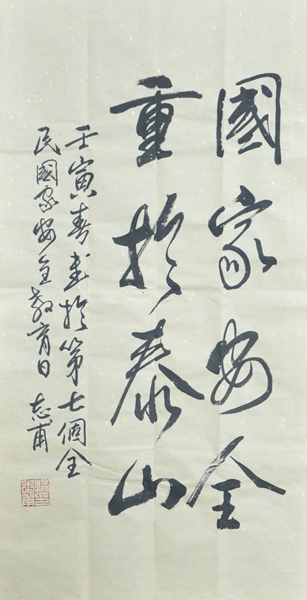 國家安全
重於泰山
壬寅春書於第七個全
民國家安全教育日 志甫